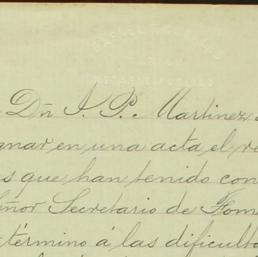 Dn J. P. Martinez
gnar en una acta el re
s que han tenido con
eñor Secretario de Fome
término á las dificulta